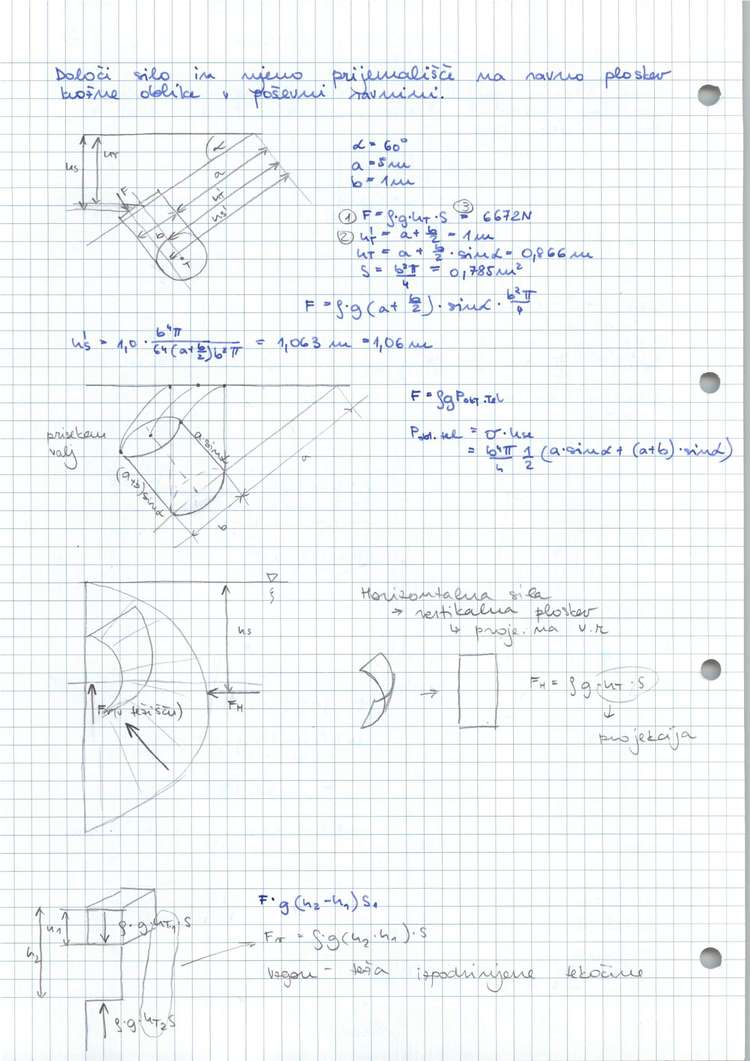 Določi silo in njeno prijemališče na ravno ploskev
krožne oblike v poševni ravnini.
α = 60°
a = 5m
b = 1m
hs
hT
F
α
a
hT'
hs'
b
T
① F = ρ·g·hT·S ③ = 6672N
② hT' = a + b/2 = 1m
hT = a + b/2 · sinα = 0,866m
S = b²π/4 = 0,785m²
F = ρ·g(a + b/2)·sinα · b²π/4
hs' = 1,0 · b⁴π/64(a+b/2)b²π = 1,063 m = 1,06m
prisekan
valj
a·sinα
(a+b)sinα
b
F = ρg
= b⁴π/4 1/2 (a·sinα + (a+b)·sinα)
hs
FH
težišču)
Horizontalna sila
→ vertikalna ploskev
↳ proje. na v.r
→
FH = ρg·hT·S
↓
projekcija
h1
h2
ρ·g·hT1·S
ρ·g·hT2S
F·g(h2-h1)S1
= ρ·g(h2·h1)·S
vzgon - teža izpodrinjene tekočine